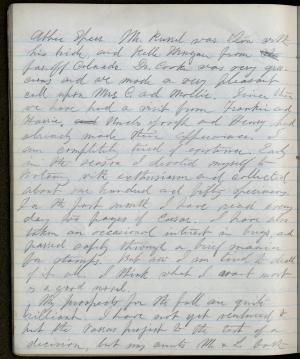 Abbie Speer. Mr. Russel was there with
his bride, and Nelle Morgan from the
far off Colorado. Dr. Cooke was very gra-
cious and we made a very pleasant
call upon Mrs C. and Mollie. Since then
we have had a visit from Frankie and
Harrie, and Uncles Joseph and Henry had
already made their appearance. I
am completely tired of existence. Early
in the season I devoted myself to
botany with enthusiasm and collected
about one hundred and fifty specimens
For the past month I have read every
day two pages of Caesar. I have also
taken an occasional interest in bugs, and
passed safely through a brief mania
for stamps. But now I am tired to death
of it all. I think what I want most
is a good novel.
My prospects for the fall are quite
brilliant. I have not yet ventured to
put the Vassar project to the test of a
decision, but my aunts M. & L. both